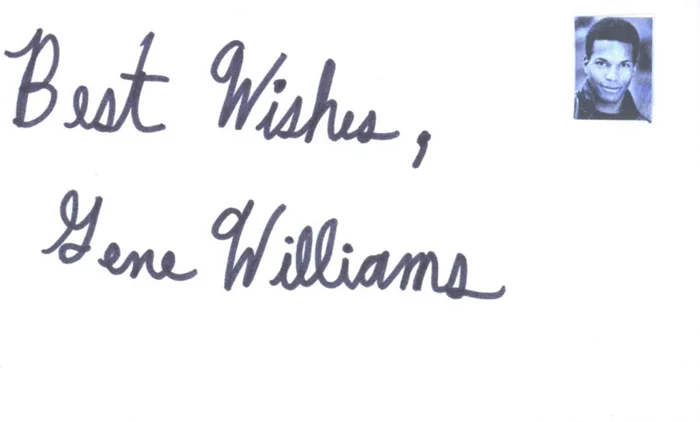 Best Wishes,
Gene Williams